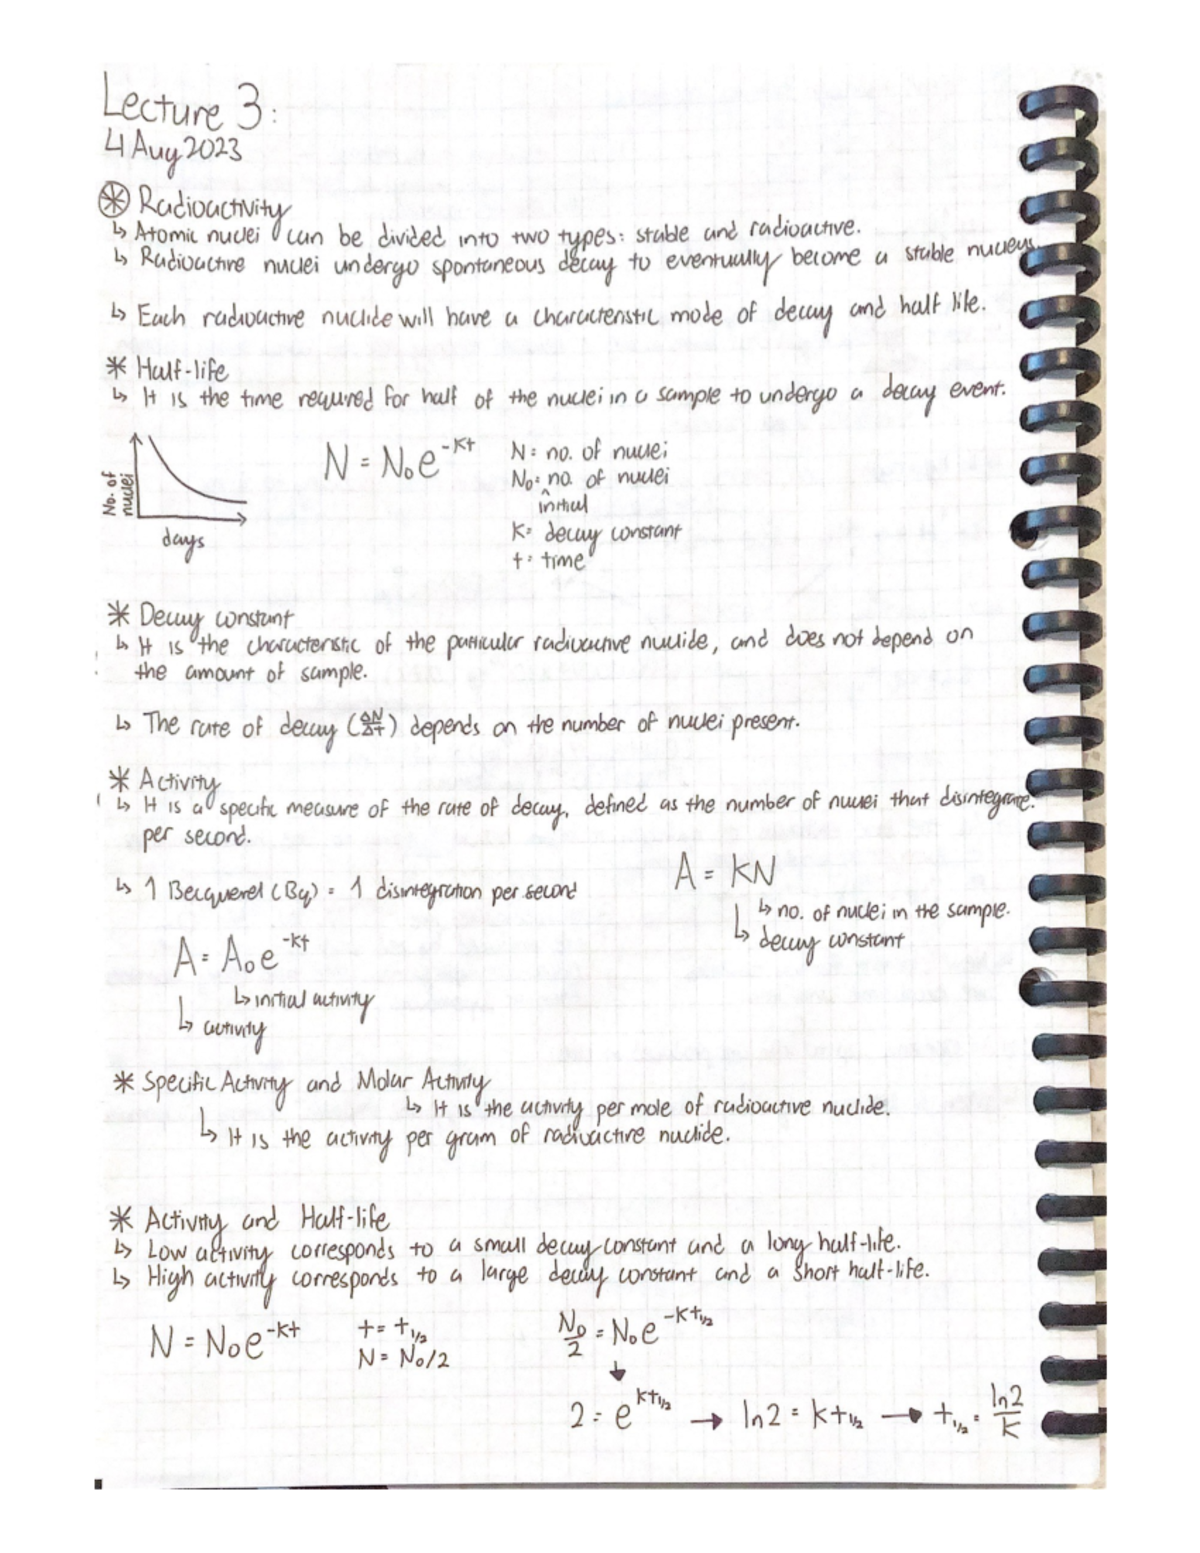 Lecture 3:
4 Aug 2023
⊛ Radioactivity
↳ Atomic nuclei can be divided into two types: stable and radioactive.
↳ Radioactive nuclei undergo spontaneous decay to eventually become a stable nucleus.
↳ Each radioactive nuclide will have a characteristic mode of decay and half life.
* Half-life
↳ It is the time required for half of the nuclei in a sample to undergo a decay event.
No. of nuclei
days
N = N₀e^-kt
N = no. of nuclei
N₀ = no. of nuclei
^ initial
K = decay constant
t = time
* Decay constant
↳ It is the characteristic of the particular radioactive nuclide, and does not depend on
the amount of sample.
↳ The rate of decay (ΔN/Δt) depends on the number of nuclei present.
* Activity
↳ It is a specific measure of the rate of decay, defined as the number of nuclei that disintegrate
per second.
↳ 1 Becquerel (Bq) = 1 disintegration per second
A = KN
↳ no. of nuclei in the sample.
↳ decay constant
A = A₀e^-kt
↳ initial activity
↳ activity
* Specific Activity and Molar Activity
↳ It is the activity per mole of radioactive nuclide.
↳ It is the activity per gram of radioactive nuclide.
* Activity and Half-life
↳ Low activity corresponds to a small decay constant and a long half-life.
↳ High activity corresponds to a large decay constant and a short half-life.
N = N₀e^-kt
t = t₁/₂
N = N₀/2
N₀/2 = N₀e^-kt₁/₂
↓
2 = e^kt₁/₂ → ln2 = kt₁/₂ → t₁/₂ = ln2/K